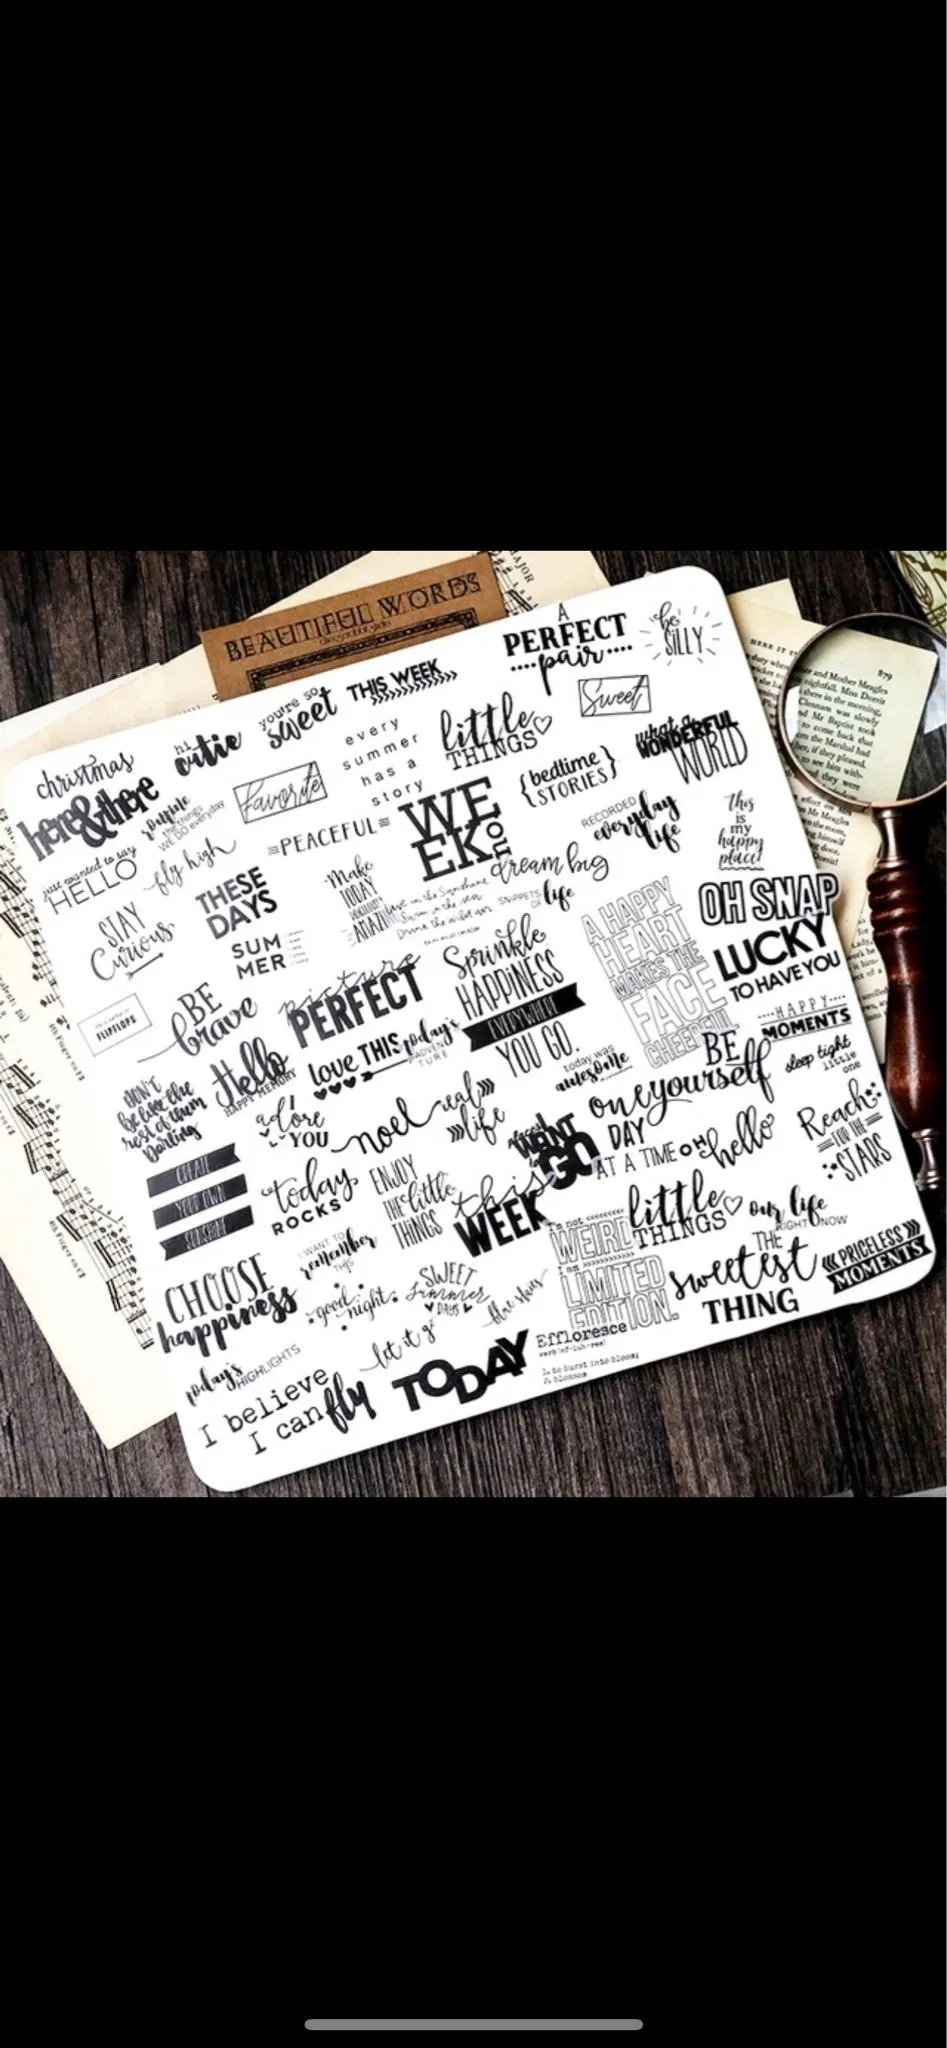 BEAUTIFUL WORDS
MAJOR
A
PERFECT
pair
be
SILLY
HERE IT IS
879
christmas
hi
cutie
you're so
sweet
THIS WEEK
every
summer
has a
story
little
THINGS
Sweet
what a
WONDERFUL
WORLD
here&there
the things
WE DO everyday
Favorite
≡PEACEFUL≡
WE
EK
{bedtime
STORIES}
RECORDED
everyday
life
this
is my
happy
place!
just wanted to say
HELLO
fly high
THESE
DAYS
Make
TODAY
AMAZING
Live in the Sunshine
Swim in the sea
Drink the wild air
dream big
SNIPPETS
OF life
A HAPPY
HEART
MAKES THE
FACE
CHEERFUL
OH SNAP
LUCKY
TO HAVE YOU
STAY
Curious
SUM
MER
FLIPFLOPS
BE
brave
picture
PERFECT
Sprinkle
HAPPINESS
EVERYWHERE
YOU GO.
HAPPY
MOMENTS
sleep tight
little
one
DON'T
be like the
rest of them
Darling
Hello
HAPPY MEMORY
love THIS
today's
ADVEN
TURE
today was
awesome
BE
yourself
adore
YOU
noel
real
life
WANT
GO
one
DAY
AT A TIME
OH
hello
Reach
FOR THE
STARS
CREATE
YOUR OWN
SUNSHINE
today
ROCKS
ENJOY
the little
THINGS
this
WEEK
little
THINGS
our life
RIGHT NOW
I WANT TO
remember
THIS
I'm not
WEIRD
I am
LIMITED
EDITION.
THE
sweetest
THING
PRICELESS
MOMENTS
CHOOSE
happiness
good
night
SWEET
Summer
DAYS
blue skies
let it go
today's
HIGHLIGHTS
I believe
I can fly
TODAY
Effloresce
verb (ef-luh-res)
1. to burst into bloom;
2. blossom